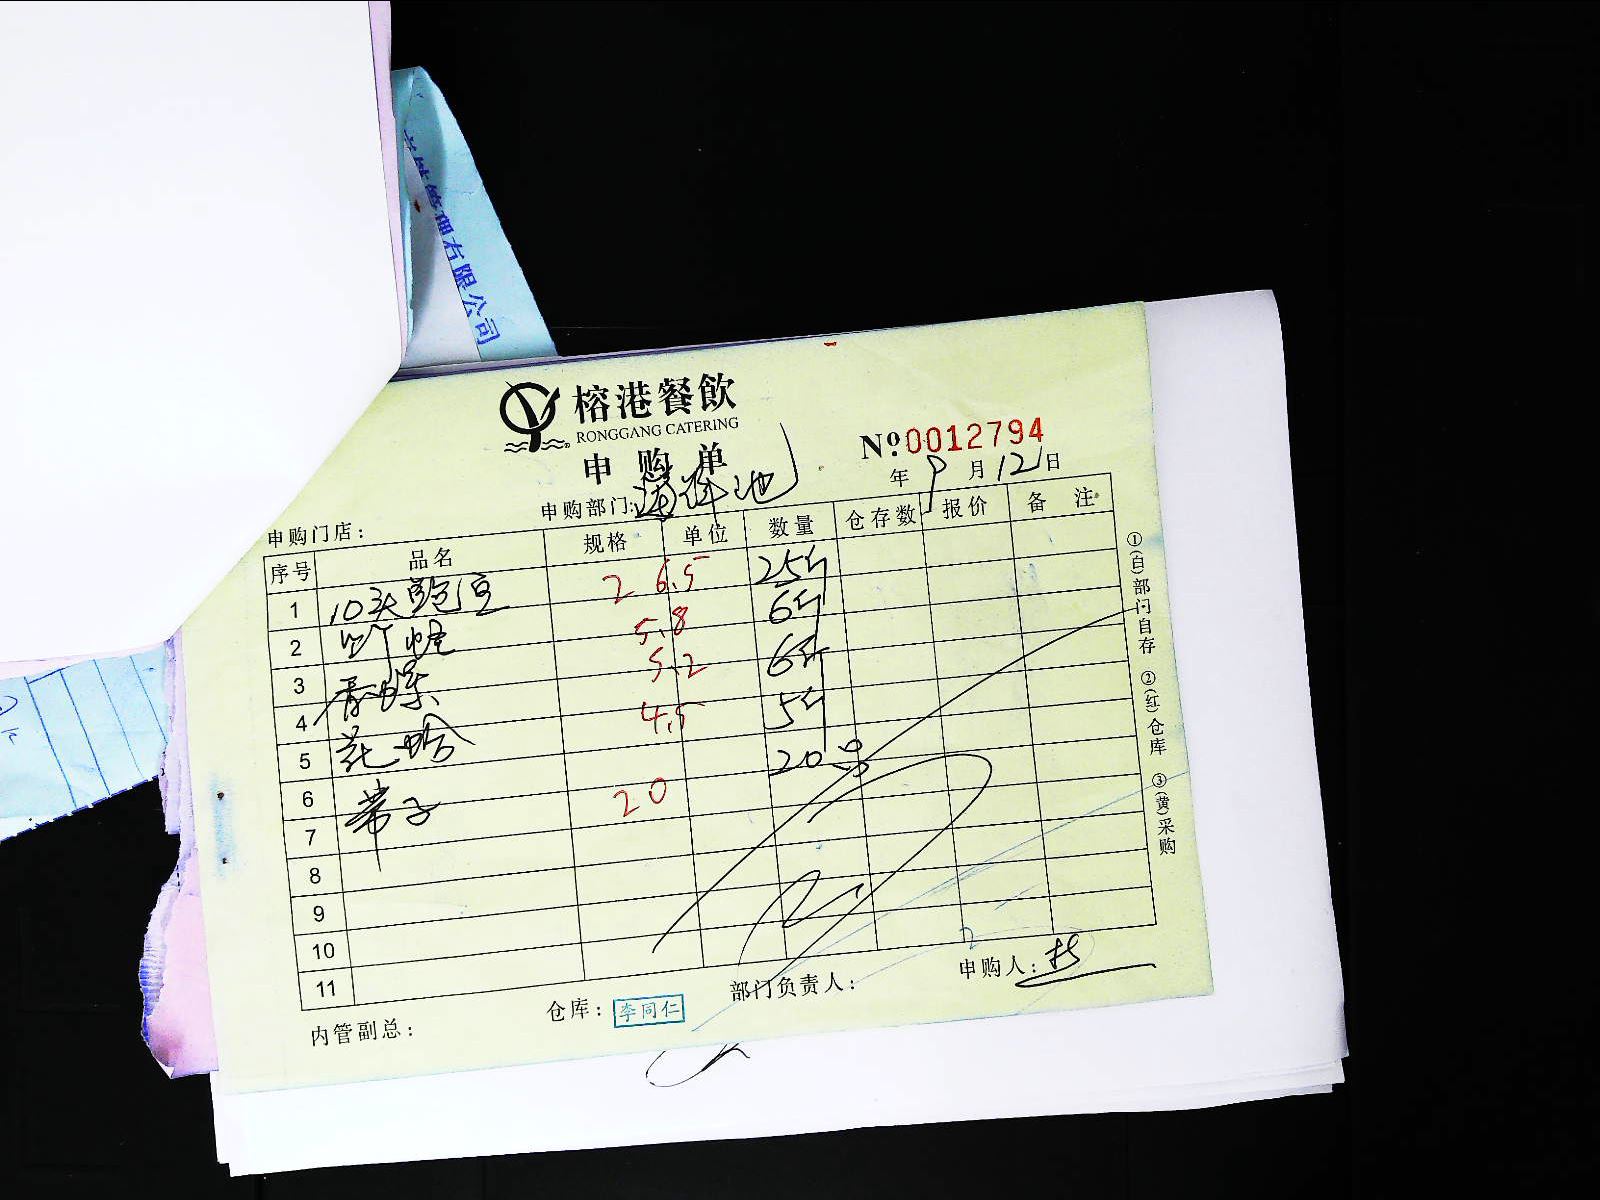 管理有限公司
榕港餐飲
RONGGANG CATERING
申购单
Nº:0012794
年 9 月 12 日
申购部门: 海鲜池
申购门店:
序号 品名 规格 单位 数量 仓存数 报价 备注
1 10头鲍 2 6.5 25斤
2 5.8 6斤
3 香螺 5.2 6斤
4 花蛤 4.5 5斤
5 20只
6 带子 20
7
8
9
10
11
①(白)部门自存 ②(红)仓库 ③(黄)采购
内管副总:
仓库: 李同仁
部门负责人:
申购人: